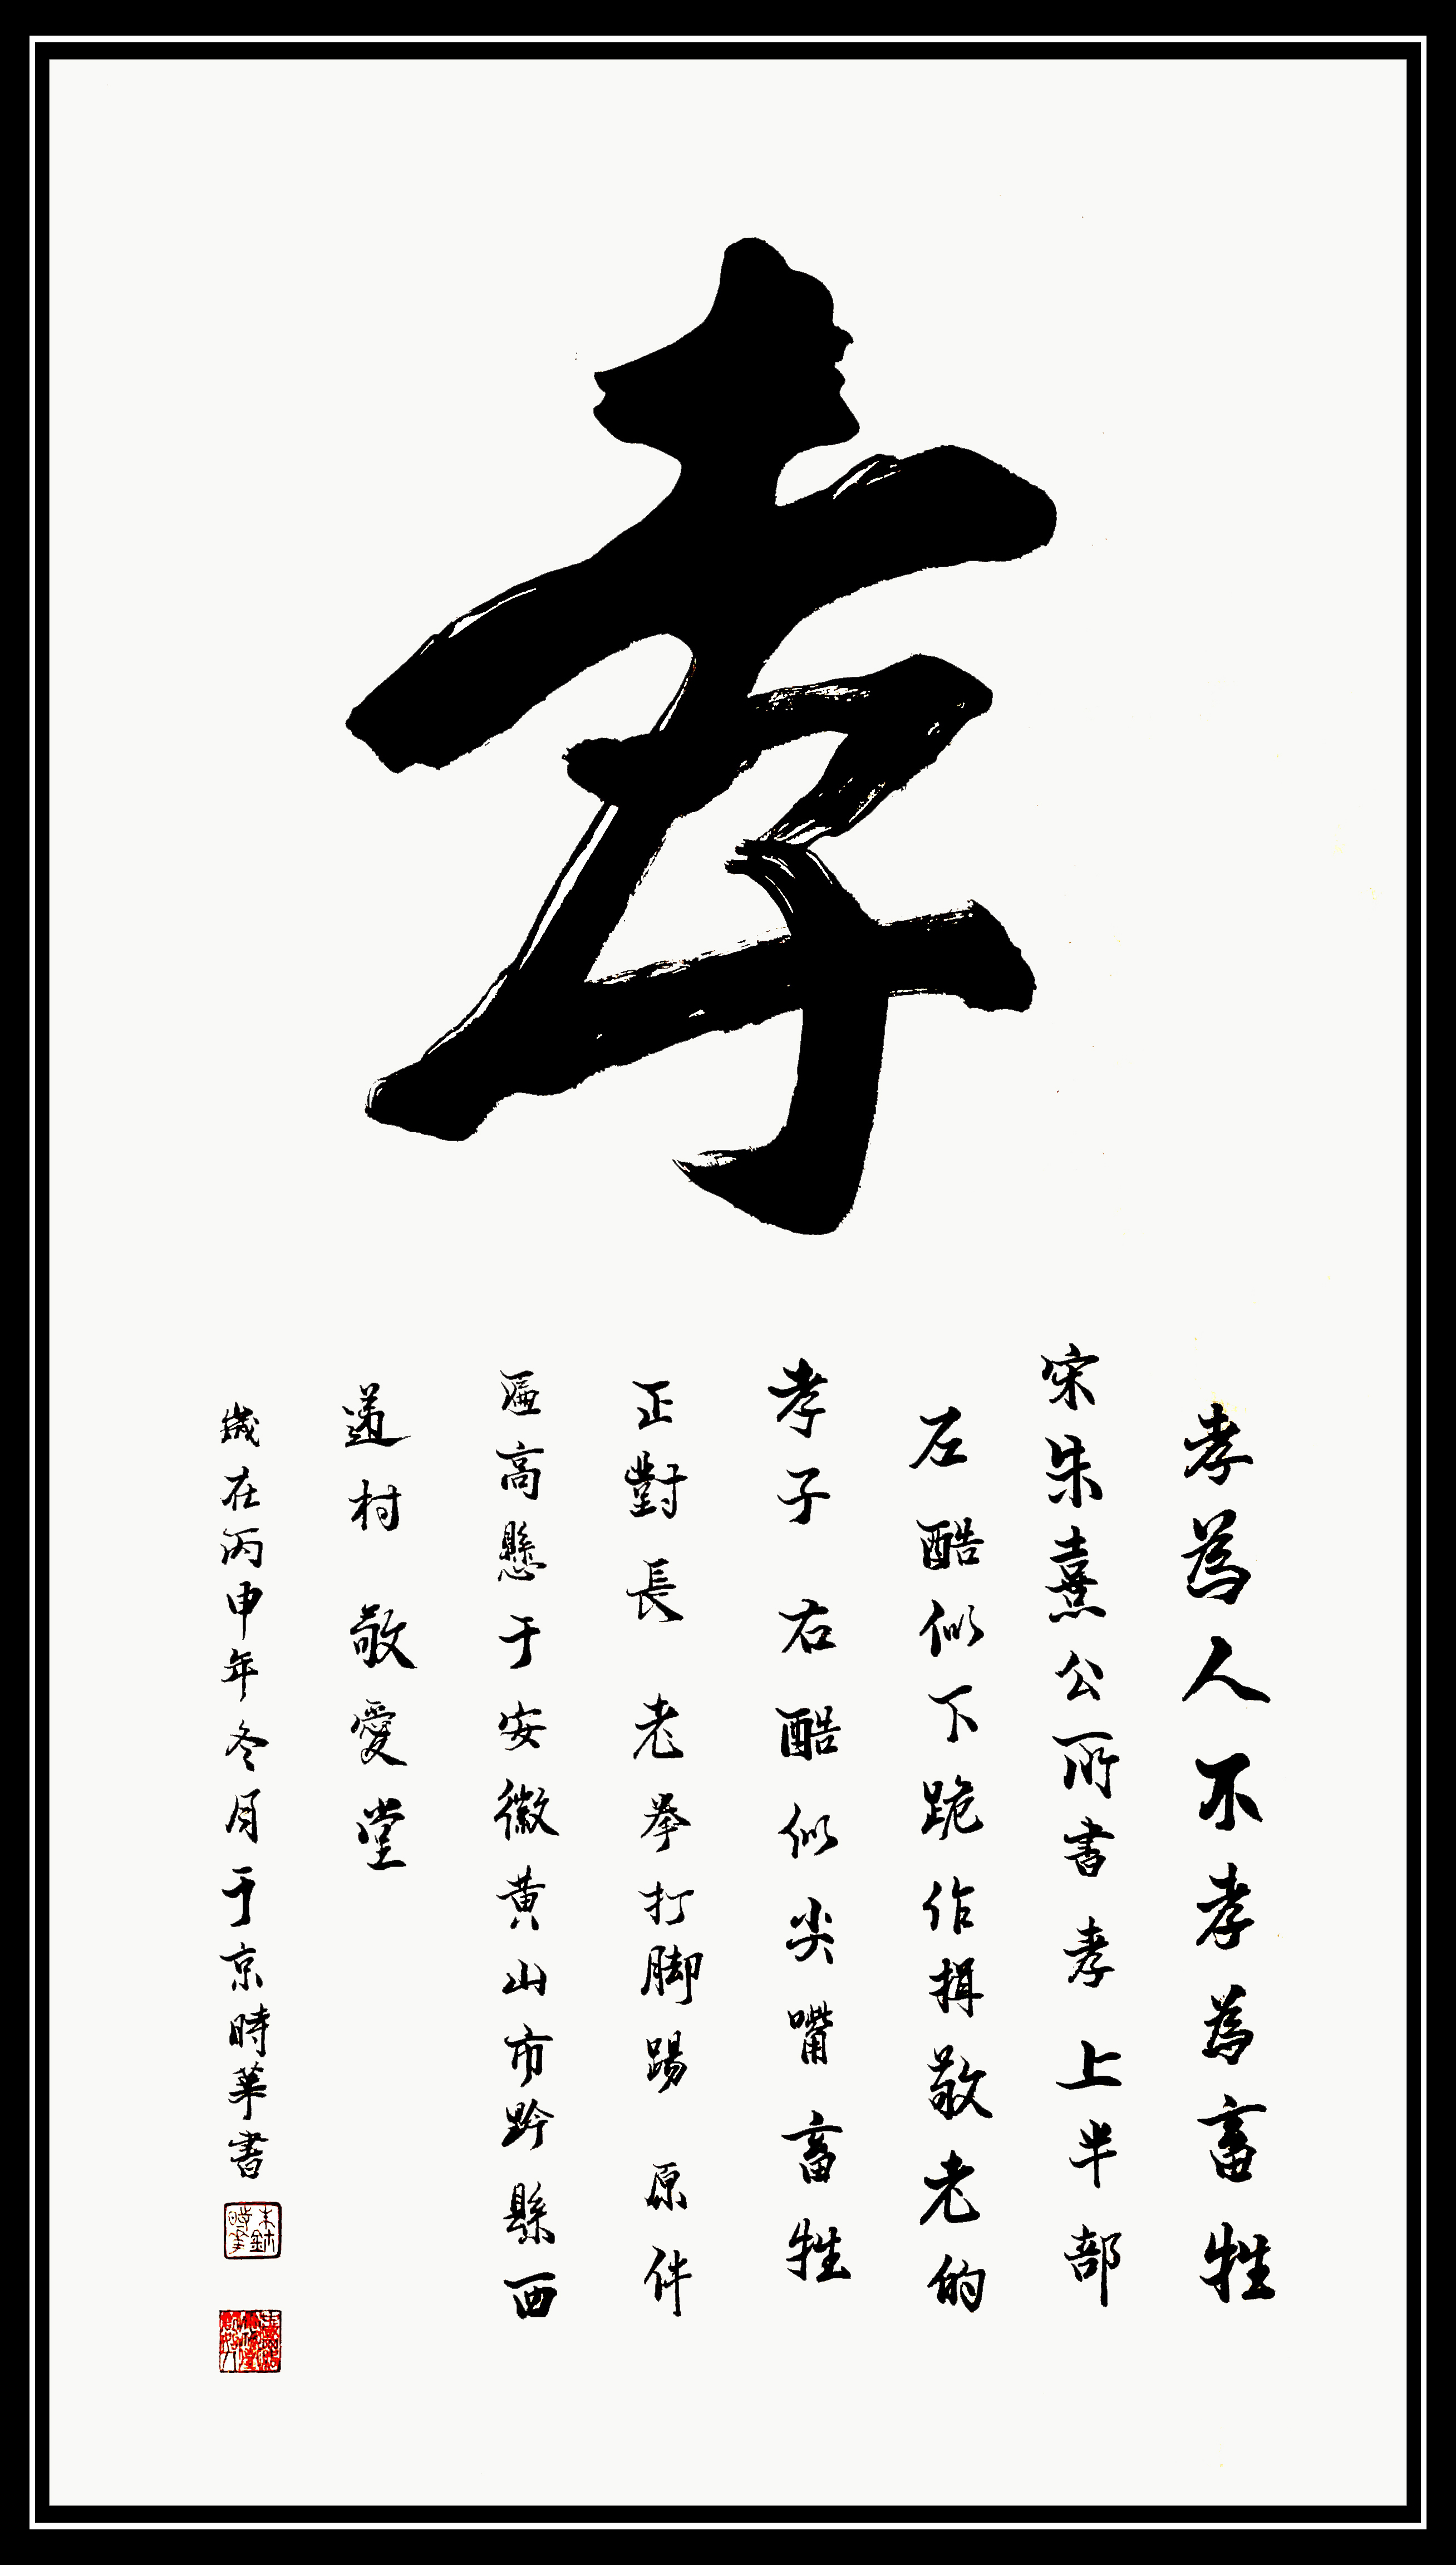 孝
孝為人不孝為畜牲
宋朱熹公所書孝上半部
左酷似下跪作揖敬老的
孝子右酷似尖嘴畜牲
正對長老拳打脚踢原件
匾高懸于安徽黃山市黟縣西
遞村敬愛堂
歲在丙申年冬月于京時華書